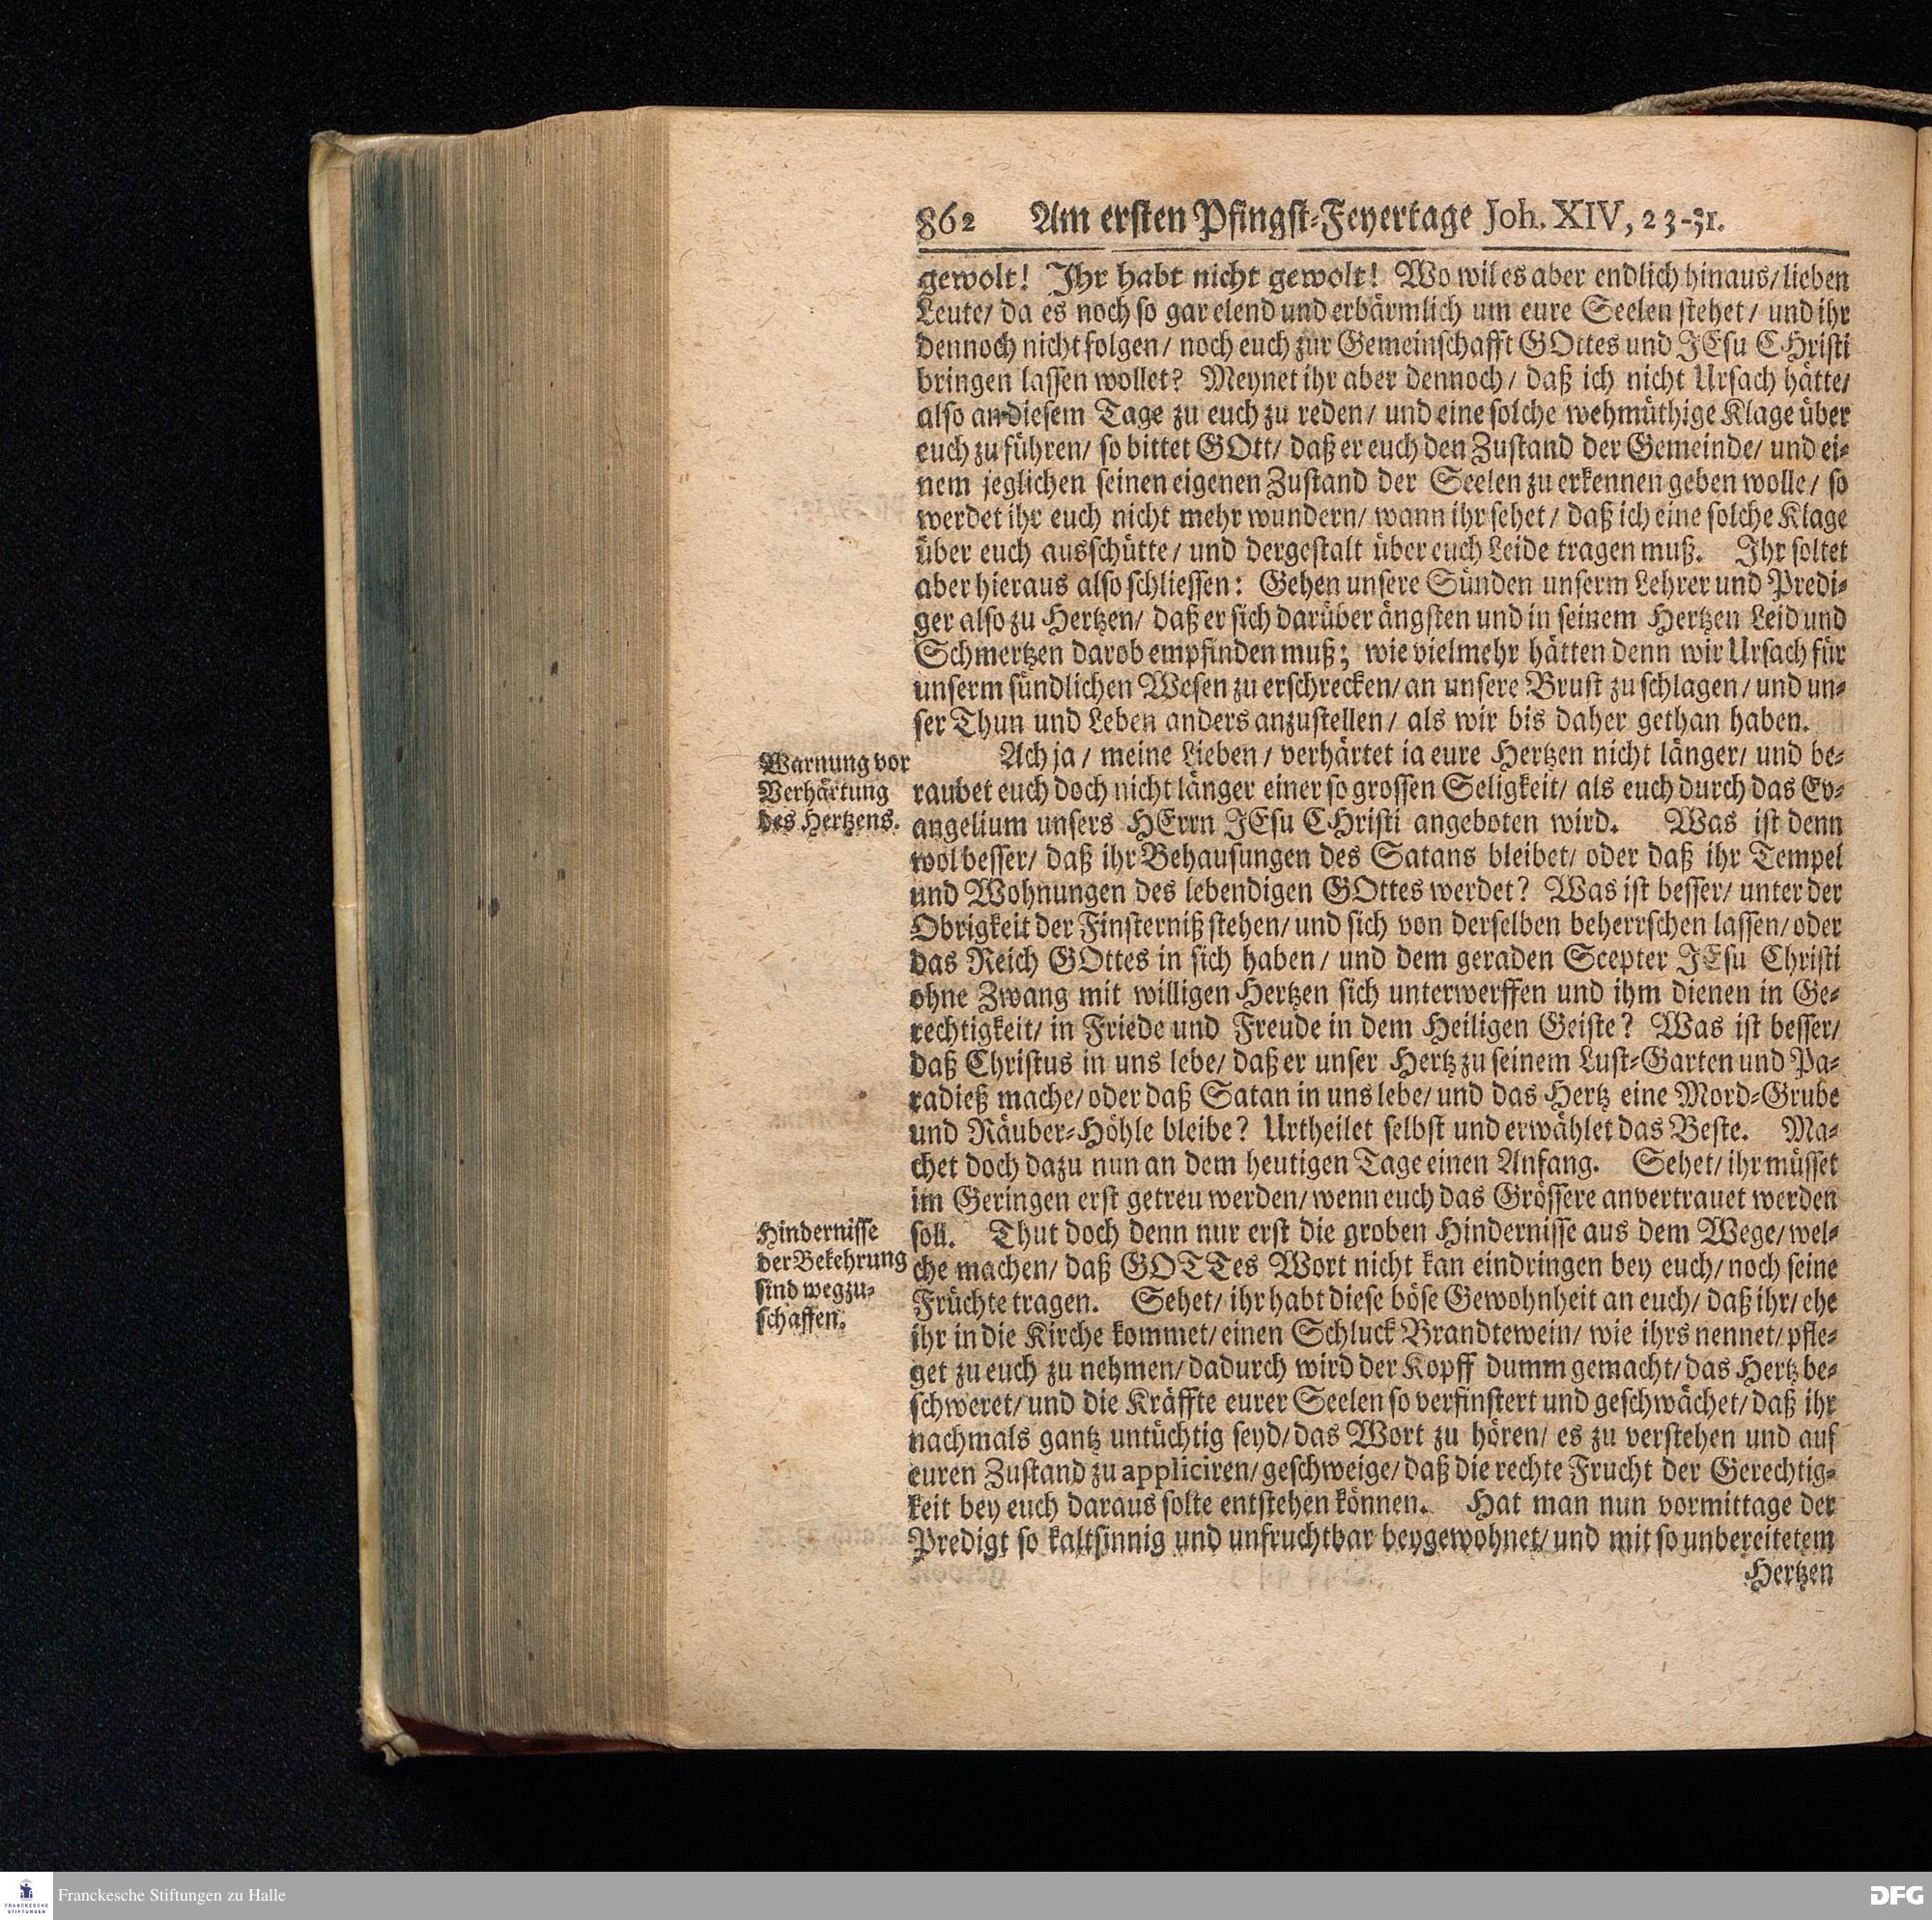 862 Am ersten Pfingst-Feyertage Joh. XIV, 23-31.
gewolt! Ihr habt nicht gewolt! Wo wil es aber endlich hinaus/ lieben
Leute/ da es noch so gar elend und erbärmlich um eure Seelen stehet/ und ihr
dennoch nicht folgen/ noch euch zur Gemeinschafft GOttes und JEsu CHristi
bringen lassen wollet? Meynet ihr aber dennoch/ daß ich nicht Ursach hätte/
also an diesem Tage zu euch zu reden/ und eine solche wehmüthige Klage über
euch zu führen/ so bittet GOtt/ daß er euch den Zustand der Gemeinde/ und ei-
nem jeglichen seinen eigenen Zustand der Seelen zu erkennen geben wolle/ so
werdet ihr euch nicht mehr wundern/ wann ihr sehet/ daß ich eine solche Klage
über euch ausschütte/ und dergestalt über euch Leide tragen muß. Ihr soltet
aber hieraus also schliessen: Gehen unsere Sünden unserm Lehrer und Predi-
ger also zu Hertzen/ daß er sich darüber ängsten und in seinem Hertzen Leid und
Schmertzen darob empfinden muß; wie vielmehr hätten denn wir Ursach für
unserm sündlichen Wesen zu erschrecken/ an unsere Brust zu schlagen/ und un-
ser Thun und Leben anders anzustellen/ als wir bis daher gethan haben.
Warnung vor
Verhärtung
des Hertzens.
Ach ja/ meine Lieben/ verhärtet ia eure Hertzen nicht länger/ und be-
raubet euch doch nicht länger einer so grossen Seligkeit/ als euch durch das Ev-
angelium unsers HErrn JEsu CHristi angeboten wird. Was ist denn
wol besser/ daß ihr Behausungen des Satans bleibet/ oder daß ihr Tempel
und Wohnungen des lebendigen GOttes werdet? Was ist besser/ unter der
Obrigkeit der Finsterniß stehen/ und sich von derselben beherrschen lassen/ oder
das Reich GOttes in sich haben/ und dem geraden Scepter JEsu Christi
ohne Zwang mit willigen Hertzen sich unterwerffen und ihm dienen in Ge-
rechtigkeit/ in Friede und Freude in dem Heiligen Geiste? Was ist besser/
daß Christus in uns lebe/ daß er unser Hertz zu seinem Lust-Garten und Pa-
radieß mache/ oder daß Satan in uns lebe/ und das Hertz eine Mord-Grube
und Räuber-Höhle bleibe? Urtheilet selbst und erwählet das Beste. Ma-
chet doch dazu nun an dem heutigen Tage einen Anfang. Sehet/ ihr müsset
im Geringen erst getreu werden/ wenn euch das Grössere anvertrauet werden
Hindernisse
der Bekehrung
sind wegzu-
schaffen.
soll. Thut doch denn nur erst die groben Hindernisse aus dem Wege/ wel-
che machen/ daß GOTTes Wort nicht kan eindringen bey euch/ noch seine
Früchte tragen. Sehet/ ihr habt diese böse Gewohnheit an euch/ daß ihr/ ehe
ihr in die Kirche kommet/ einen Schluck Brandtewein/ wie ihrs nennet/ pfle-
get zu euch zu nehmen/ dadurch wird der Kopff dumm gemacht/ das Hertz be-
schweret/ und die Kräffte eurer Seelen so verfinstert und geschwächet/ daß ihr
nachmals gantz untüchtig seyd/ das Wort zu hören/ es zu verstehen und auf
euren Zustand zu appliciren/ geschweige/ daß die rechte Frucht der Gerechtig-
keit bey euch daraus solte entstehen können. Hat man nun vormittage der
Predigt so kaltsinnig und unfruchtbar beygewohnet/ und mit so unbereitetem
Hertzen
FRANCKESCHE
STIFTUNGEN
Franckesche Stiftungen zu Halle
DFG